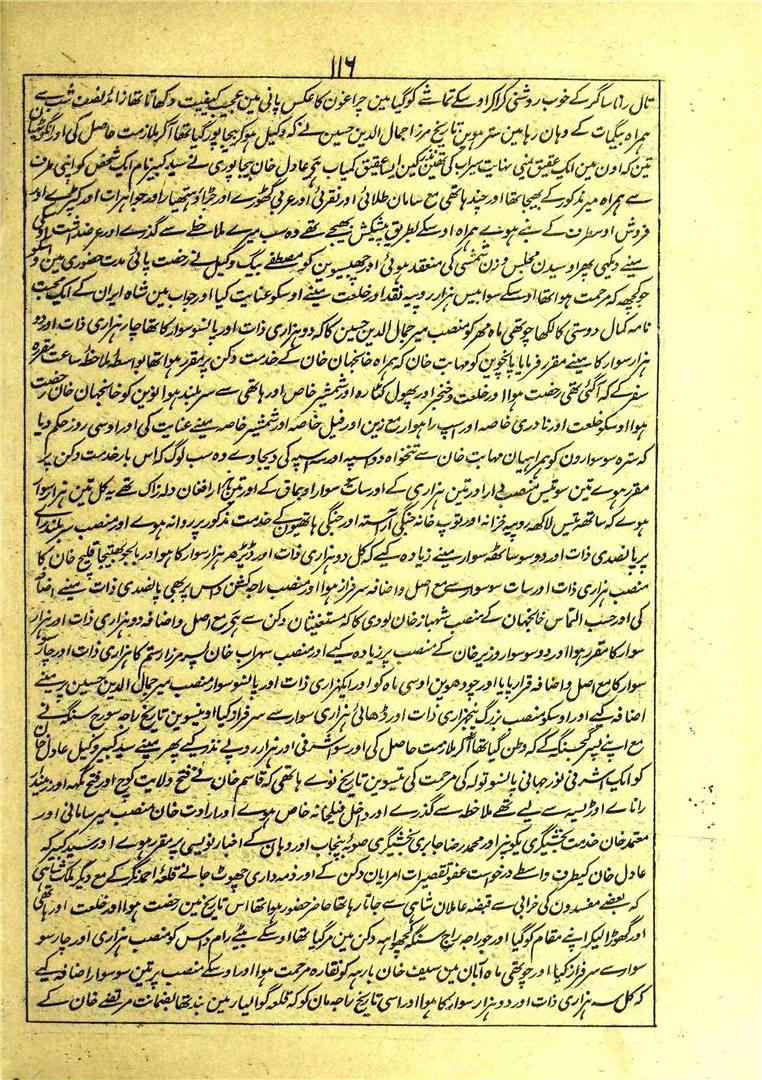 ١١٦
تال رانا ساگر کے خوب روشنی کرا کر اوسکے تماشے کو گیا مین چراغون کا عکس پانی مین عجیب کیفیت دکھاتا تھا زائد نصف شب سے
ہمراہ بیگمات کے وہان رہا مین سترہوین تاریخ مرزا جمال الدین حسین نے کہ وکیل ہو کر بیجاپور گیا تھا آکر ملازمت حاصل کی اور انگوٹھیان
تین کہ اون مین ایک عقیق یمنی نہایت سیراب کی تھی نذر کین ایسا عقیق کمیاب ہے عادل خان بیجاپوری نے سید کبیر نام ایک شخص کو اپنی طرف
سے ہمراہ میر مذکور کے بھیجا تھا اور چند ہاتھی مع سامان طلائی اور نقرئی اور عربی گھوڑے اور جڑاؤ ہتھیار اور جواہرات اور کپڑے اور
فروش اوسطرف کے بنے ہوے ہمراہ اوسکے بطریق پیشکش بھیجے تھے وہ سب میرے ملاحظے سے گذرے اور عرضداشت اوسکی
مینے دیکھی پھر اوسیدن مجلس وزن شمسی کی منعقد ہوئی اور چھبیسوین کو مصطفے بیگ وکیل نے رخصت پائی مدت حضوری مین
جو کچھ کہ مرحمت ہوا تھا اوسکے سوا بیس ہزار روپیہ نقد اور خلعت مینے اوسکو عنایت کیا اور جواب مین شاہ ایران کے ایک محبت
نامہ کمال دوستی کا لکھا چوتھی ماہ مہر کو منصب میر جمال الدین حسین کا کہ دو ہزاری ذات اور پانسو سوار کا تھا چار ہزاری ذات اور دو
ہزار سوار کا مینے مقرر فرمایا پانچوین کو مہابت خان کہ ہمراہ خانجہان خان کے خدمت دکن پر مقرر ہوا تھا بواسطۂ ملاحظۂ ساعت مقررہ
سفر کے کہ آگئی تھی رخصت ہوا اور خلعت و خنجر اور پھول کٹارہ اور شمشیر خاص اور ہاتھی سے سربلند ہوا نوین کو خانجہان خان رخصت
ہوا اوسکو خلعت اور نادری خاصہ اور اسپ راہوار مع زین اور فیل خاصہ اور شمشیر خاصہ مینے عنایت کی اور اوسی روز حکم دیا
کہ سترہ سو سوارون کو ہمراہیان مہابت خان سے تنخواہ دو اسپہ اور سہ اسپہ کی دیجاوے وہ سب لوگ کہ اس بار خدمت دکن پر
مقرر ہوے تین سو تیس منصبدار اور تین ہزاری کے اور سات سو سوار اویماق کے اور تین ہزار افغان دلہ زاک تھے یہ کل تین ہزار سوار
ہوے کہ ساتھ تیس لاکھ روپیہ خزانہ اور توپ خانہ جنگی آراستہ اور جنگی ہاتھیون کے خدمت مذکور پر روانہ ہوے اور منصب سربلند راے
پر پانصدی ذات اور دو سو ساٹھ سوار مینے زیادہ کیے کہ کل دو ہزاری ذات اور ڈیڑھ ہزار سوار کا ہوا اور بالجو بھتیجا قلیچ خان کا
منصب ہزاری ذات اور سات سو سوار سے مع اصل و اضافہ سرفراز ہوا اور منصب راجہ کشن داس پر بھی پانصدی ذات مینے اضافہ
کی اور حسب التماس خانجہان کے منصب شہباز خان لودی کا کہ متعینان دکن سے ہے مع اصل و اضافہ دو ہزاری ذات اور ہزار
سوار کا مقرر ہوا اور دو سو سوار وزیر خان کے منصب پر زیادہ کیے اور منصب سہراب خان پسر مرزا رستم کا ہزاری ذات اور چار سو
سوار کا مع اصل و اضافہ قرار پایا اور چودھوین اوسی ماہ کو اور ایکہزاری ذات اور پانسو سوار منصب میر جمال الدین حسین پر مینے
اضافہ کیے اور اوسکو منصب بزرگ پنجہزاری ذات اور ڈھائی ہزاری سوار سے سرفراز کیا اونیسوین تاریخ راجہ سورج سنگہ نے
مع اپنے پسر گجسنگہ کے کہ وطن گیا تھا آکر ملازمت حاصل کی اور سو اشرفی اور ہزار روپے نذر کیے پھر مینے سید کبیر وکیل عادل خان
کو ایک اشرفی نور جہانی پانسو تولہ کی مرحمت کی تیسوین تاریخ نوے ہاتھی کہ قاسم خان نے فتح ولایت کوچ اور فتح مگھہ اور زمیندار
راناے اوڑیسہ سے لیے تھے ملاحظہ سے گذرے اور داخل فیلخانہ خاص ہوے اور ارادت خان منصب میر سامانی اور
معتمد خان خدمت بخشیگری یکہ پر اور محمد رضا جابری بخشیگری صوبۂ پنجاب اور وہان کے اخبار نویسی پر مقرر ہوے اور سید کبیر کہ
عادل خان کیطرف واسطے درخواست عفو تقصیرات امرایان دکن کے اور ذمہ داری چھوٹ جانے قلعۂ احمد نگر کے مع دیگر ملک شاہی
کہ بعضے مفسدون کی خرابی سے قبضہ عاملان شاہی سے جاتا رہا تھا حاضر حضور ہوا تھا اس تاریخ مین رخصت ہوا اور خلعت اور ہاتھی
اور گھوڑا لیکر اپنے مقام کو گیا اور جو راجہ راج سنگہ کچھواہہ دکن مین مرگیا تھا اوسکے بیٹے رام داس کو منصب ہزاری اور چار سو
سوار سے سرفراز کیا اور چوتھی ماہ آبان مین سیف خان بارہہ کو نقارہ مرحمت ہوا اور اوسکے منصب پر تین سو سوار اضافہ کیے
کہ کل سہ ہزاری ذات اور دو ہزار سوار کا ہوا اور اسی تاریخ راجہ مان کو کہ قلعہ گوالیار مین بند تھا بضمانت مرتضے خان کے